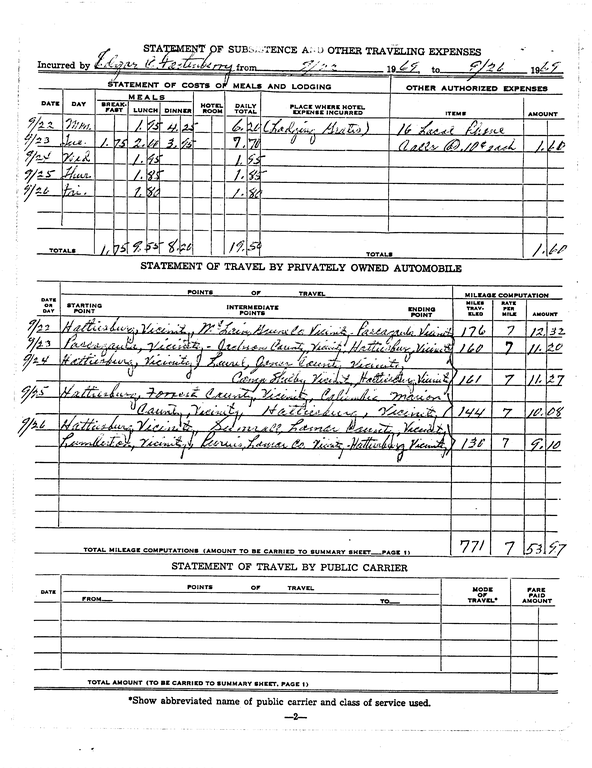 STATEMENT OF SUBSISTENCE AND OTHER TRAVELING EXPENSES
Incurred by Edgar C. Fortenberry from 9/22 1969 to 9/26 1969
STATEMENT OF COSTS OF MEALS AND LODGING OTHER AUTHORIZED EXPENSES
DATE DAY MEALS BREAKFAST LUNCH DINNER HOTEL ROOM DAILY TOTAL PLACE WHERE HOTEL EXPENSE INCURRED ITEMS AMOUNT
9/22 Mon. 1.95 4.25 6.20 (Lodging Gratis) 16 Local Phone
9/23 Tue. 1.75 2.00 3.95 7.70 Calls @ 10¢ each 1.60
9/24 Wed 1.95 1.95
9/25 Thur. 1.85 1.85
9/26 Fri. 1.80 1.80
TOTALS 1.75 9.55 8.20 19.50 TOTALS 1.60
STATEMENT OF TRAVEL BY PRIVATELY OWNED AUTOMOBILE
DATE OR DAY POINTS OF TRAVEL STARTING POINT INTERMEDIATE POINTS ENDING POINT MILEAGE COMPUTATION MILES TRAVELED RATE PER MILE AMOUNT
9/22 Hattiesburg Vicinity, McLain Greene Co. Vicinity - Pascagoula Vicinity 176 7 12.32
9/23 Pascagoula, Vicinity, - Jackson County, Vicinity, Hattiesburg, Vicinity 160 7 11.20
9/24 Hattiesburg, Vicinity, Laurel, Jones County, Vicinity,
Camp Shelby Vicinity, Hattiesburg, Vicinity 161 7 11.27
9/25 Hattiesburg, Forrest County, Vicinity, Columbia Marion
County, Vicinity, Hattiesburg, Vicinity 144 7 10.08
9/26 Hattiesburg Vicinity, Sumrall, Lamar County, Vicinity,
Lumberton, Vicinity, Purvis, Lamar Co. Vicinity - Hattiesburg Vicinity 130 7 9.10
TOTAL MILEAGE COMPUTATIONS (AMOUNT TO BE CARRIED TO SUMMARY SHEET PAGE 1) 771 7 53.97
STATEMENT OF TRAVEL BY PUBLIC CARRIER
DATE POINTS OF TRAVEL MODE OF TRAVEL* FARE PAID AMOUNT
FROM TO
TOTAL AMOUNT (TO BE CARRIED TO SUMMARY SHEET, PAGE 1)
*Show abbreviated name of public carrier and class of service used.
—2—